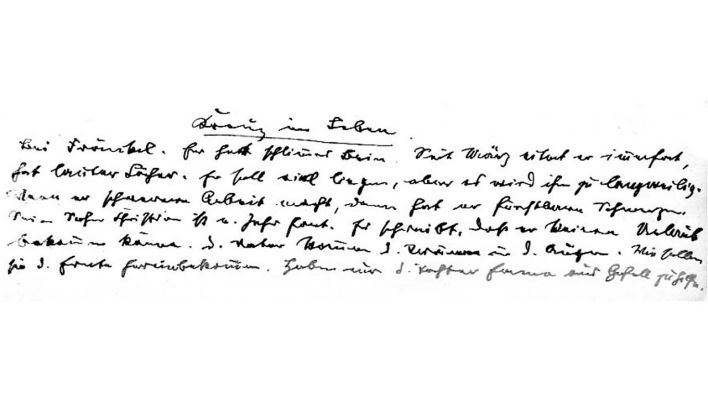 Kreuz im Leben.
bei Fränkel. Er hat schlimmes Bein. Seit März eitert er immerfort,
hat lauter Löcher. Er soll viel liegen, aber es wird ihm zu langweilig.
Wenn er schwerere Arbeit macht, dann hat er furchtbare Schmerzen.
Sein Sohn Christian ist u. Jahr fort. Er schreibt, daß er keinen Urlaub
bekommen könne. D. Vater kommen d. Tränen in d. Augen. Wie sollen
sie d. Ernte hereinbekommen. Haben nur d. Tochter Emma als Gehilf